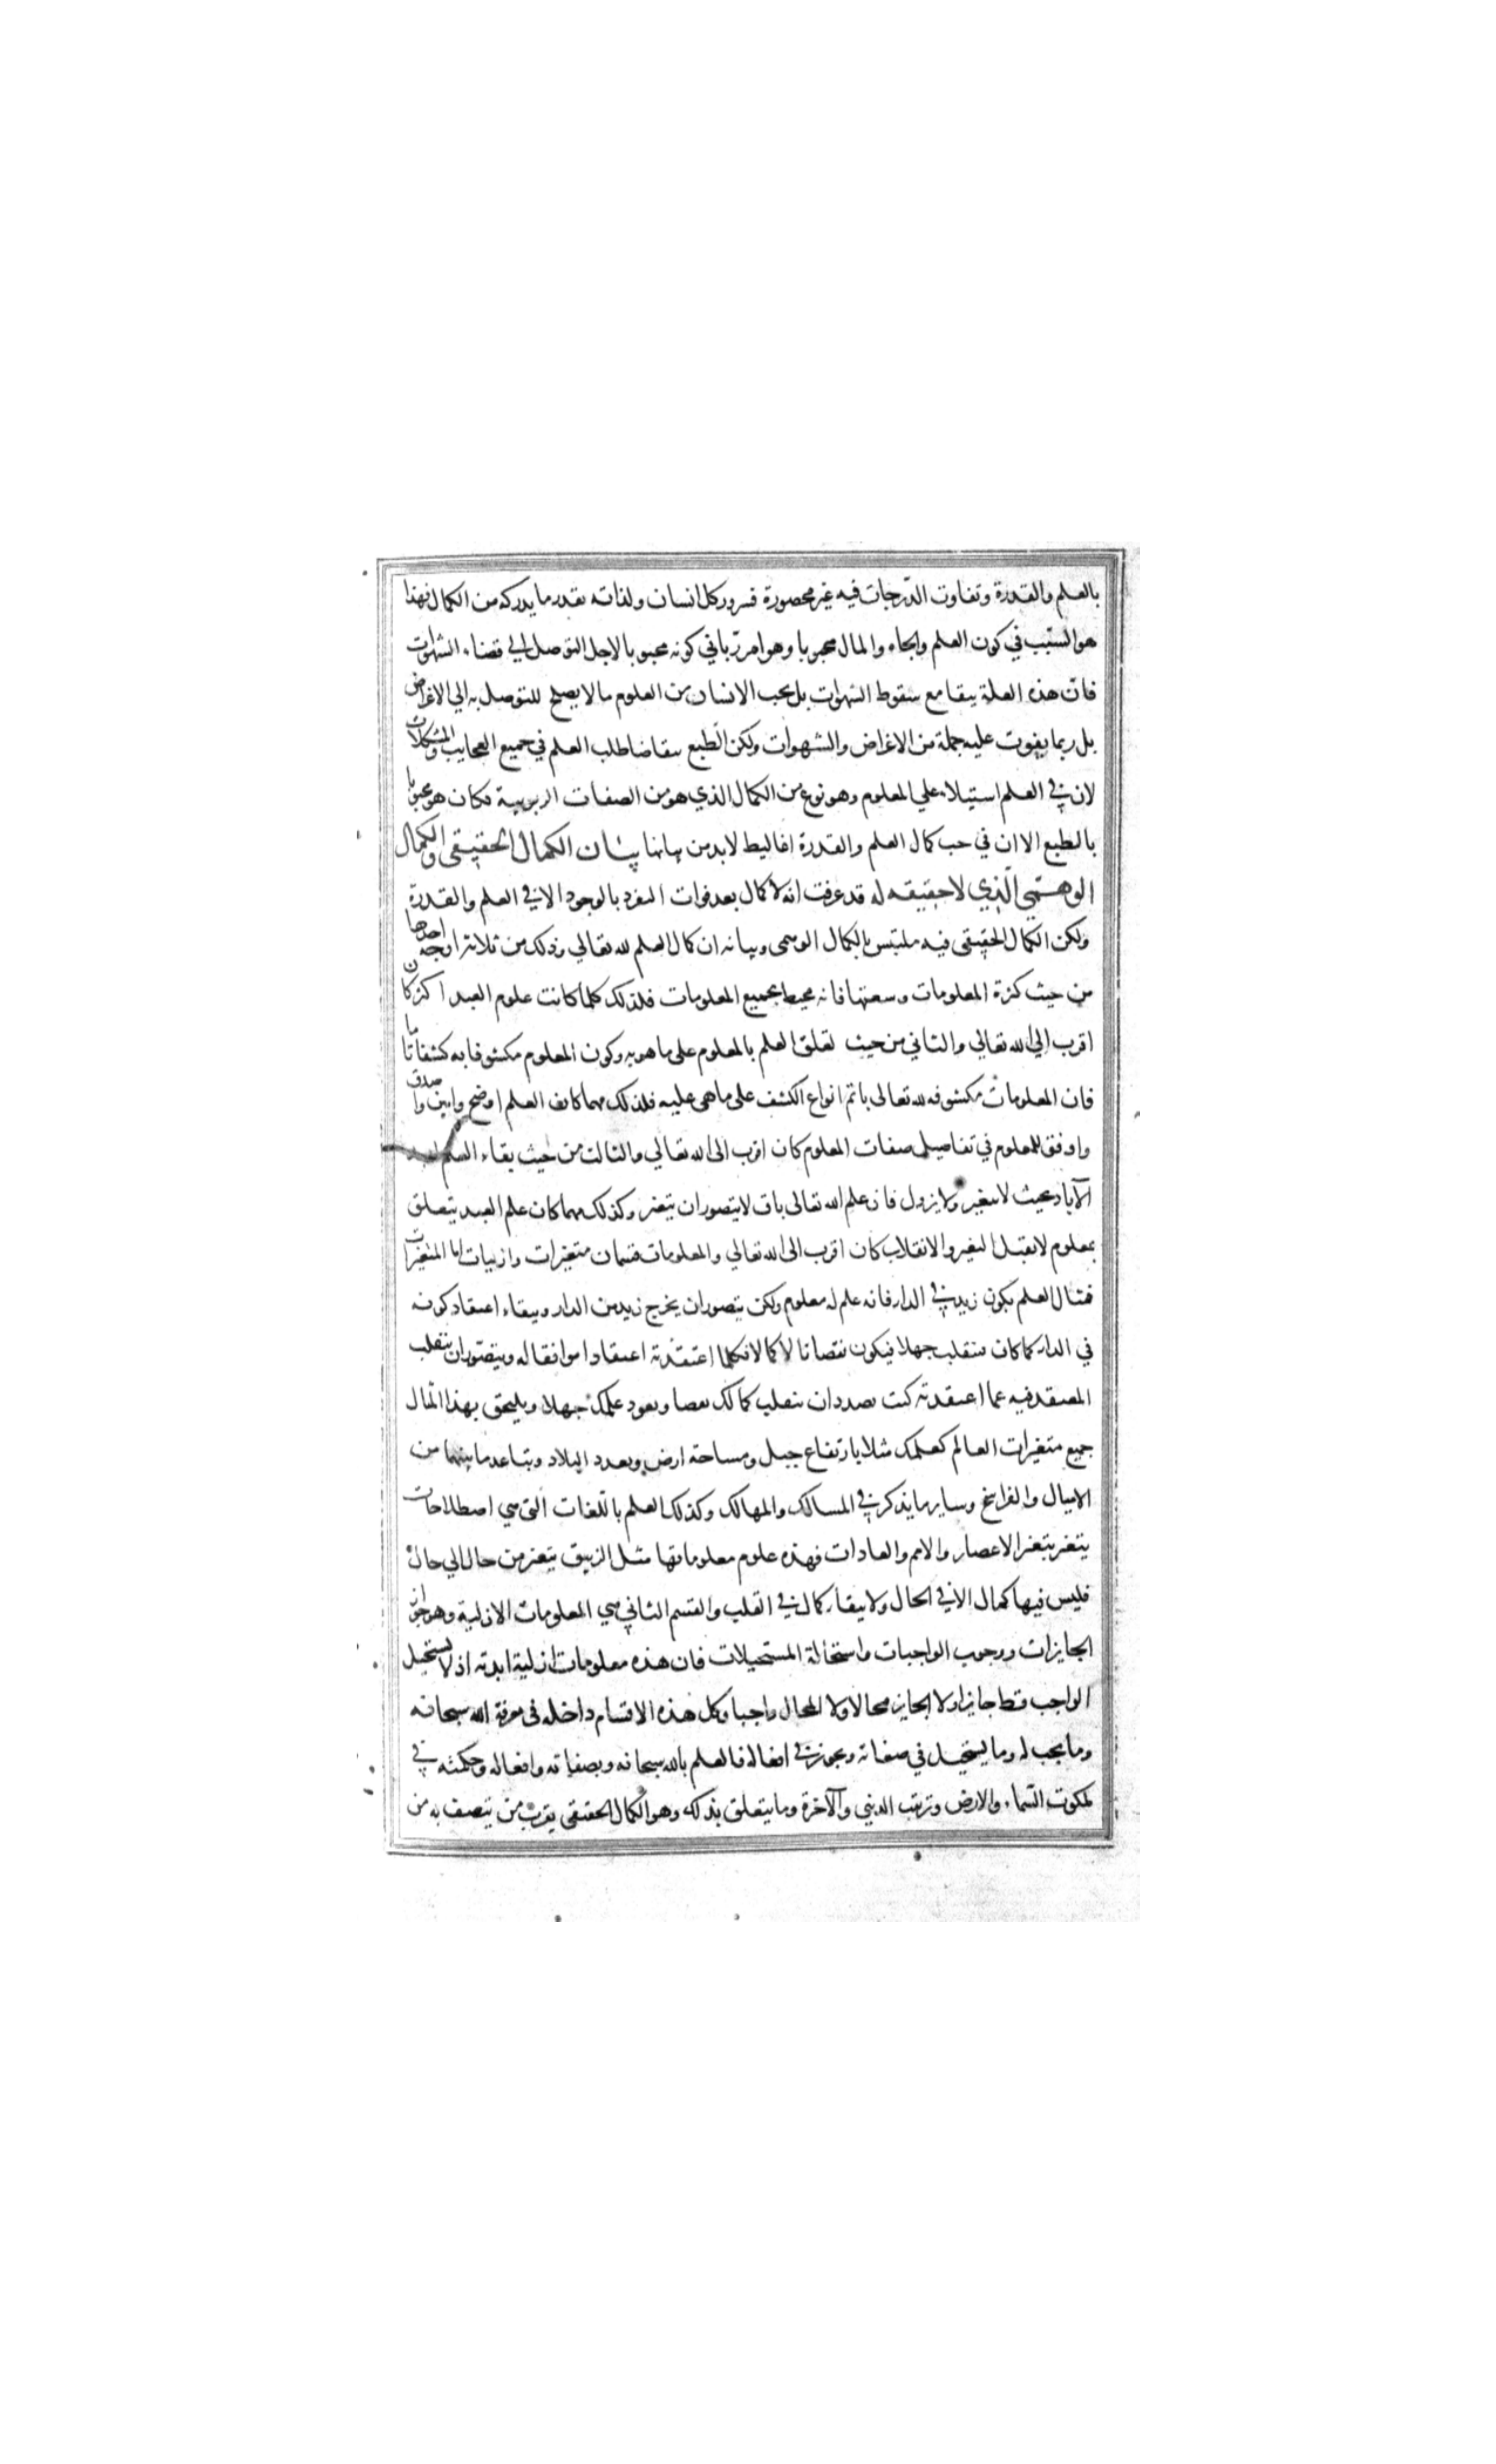 بالعلم والقدرة وتفاوت الدرجات فيه غير محصورة فسرور كل انسان ولذاته بقدر ما يدركه من الكمال فهذا
هو السبب في كون العلم والجاه والمال محبوبا وهو امر رباني كونه محبوبا لاجل التوصل الي قضاء الشهوات
فان هذه العلة يبقا مع سقوط الشهوات بل يحب الانسان من العلوم ما لا يصلح للتوصل به الي الاغراض
بل ربما يفوت عليه جملة من الاغراض والشهوات ولكن الطبع يتقاضا طلب العلم في جميع العجايب والمشكلات
لان في العلم استيلاء علي المعلوم وهو نوع من الكمال الذي هو من الصفات الربوبية فكان هو محبوبا
بالطبع الا ان في حب كمال العلم والقدرة اغاليط لا بد من بيانها بيان الكمال الحقيقي والكمال
الوهمي الذي لا حقيقه له قد عرفت انه لا كمال بعد فوات التفرد بالوجود الا في العلم والقدرة
ولكن الكمال الحقيقي فيه ملتبس بالكمال الوهمي وبيانه ان كمال العلم لله تعالي وذلك من ثلاثة اوجه احدها
من حيث كثرة المعلومات وسعتها فانه محيط بجميع المعلومات فلذلك كلما كانت علوم العبد اكثر كان
اقرب الي الله تعالي والثاني من حيث تعلق العلم بالمعلوم علي ما هو به وكون المعلوم مكشوفا به كشفا تاما
فان المعلومات مكشوفه لله تعالى باتم انواع الكشف على ما هي عليه فلذلك مهما كان العلم اوضح وابين واصدق
واوفق للمعلوم في تفاصيل صفات المعلوم كان اقرب الى الله تعالي والثالث من حيث بقاء العلم ابد
الآباد بحيث لا يتغير ولا يزول فان علم الله تعالى باق لا يتصور ان يتغير وكذلك مهما كان علم العبد يتعلق
بمعلوم لا يقبل التغير والانقلاب كان اقرب الى الله تعالي والمعلومات قسمان متغيرات وازليات اما المتغيرات
فمثال العلم بكون زيد في الدار فانه علم له معلوم ولكن يتصور ان يخرج زيد من الدار ويبقاء اعتقاد كونه
في الدار كما كان منقلب جهلا فيكون نقصانا لا كمالا فكلما اعتقدته اعتقادا موافقا له ويتصور ان ينقلب
المعتقد فيه عما اعتقدته كنت بصدد ان ينقلب كمالك نقصا ويعود علمك جهلا ويلحق بهذا المثال
جميع متغيرات العالم كعلمك مثلا بارتفاع جبل ومساحة ارض وبعدد البلاد وبتباعد ما بينهما من
الاميال والفراسخ وساير ما يذكر في المسالك والممالك وكذلك العلم باللغات التي هي اصطلاحات
يتغير بتغير الاعصار والامم والعادات فهذه علوم معلوماتها مثل الزيبق يتغير من حال الي حال
فليس فيها كمال الا في الحال ولا يبقا كمال في القلب والقسم الثاني هي المعلومات الازلية وهو جواز
الجايزات ووجوب الواجبات واستحالة المستحيلات فان هذه معلومات ازلية ابديه اذ لا يستحيل
الواجب قط جايزا ولا الجايز محالا ولا المحال واجبا وكل هذه الاقسام داخله في معرفة الله سبحانه
وما يجب له وما يستحيل في صفاته ويجوز في افعاله فالعلم بالله سبحانه وبصفاته وافعاله وحكمته في
ملكوت السماء والارض وترتيب الدني والآخرة وما يتعلق بذلك وهو الكمال الحقيقي يقرب من يتصف به من